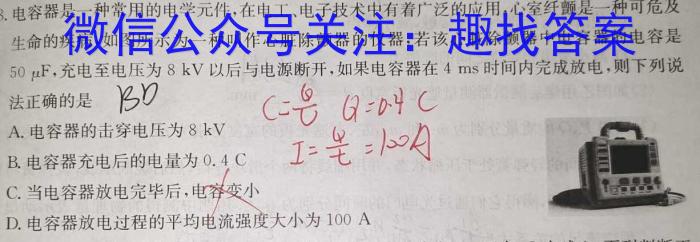 8.电容器是一种常用的电学元件,在电工、电子技术中有着广泛的应用,心室纤颤是一种可危及
生命的疾
微信公众号关注：趣找答案
电容是
50 μF,充电至电压为 8 kV 以后与电源断开,如果电容器在 4 ms 时间内完成放电,则下列说
法正确的是
BD
C=Q/U Q=0.4 C
A. 电容器的击穿电压为 8 kV
I=Q/t=100A
B. 电容器充电后的电量为 0.4 C
C. 当电容器放电完毕后,电容变小
D. 电容器放电过程的平均电流强度大小为 100 A